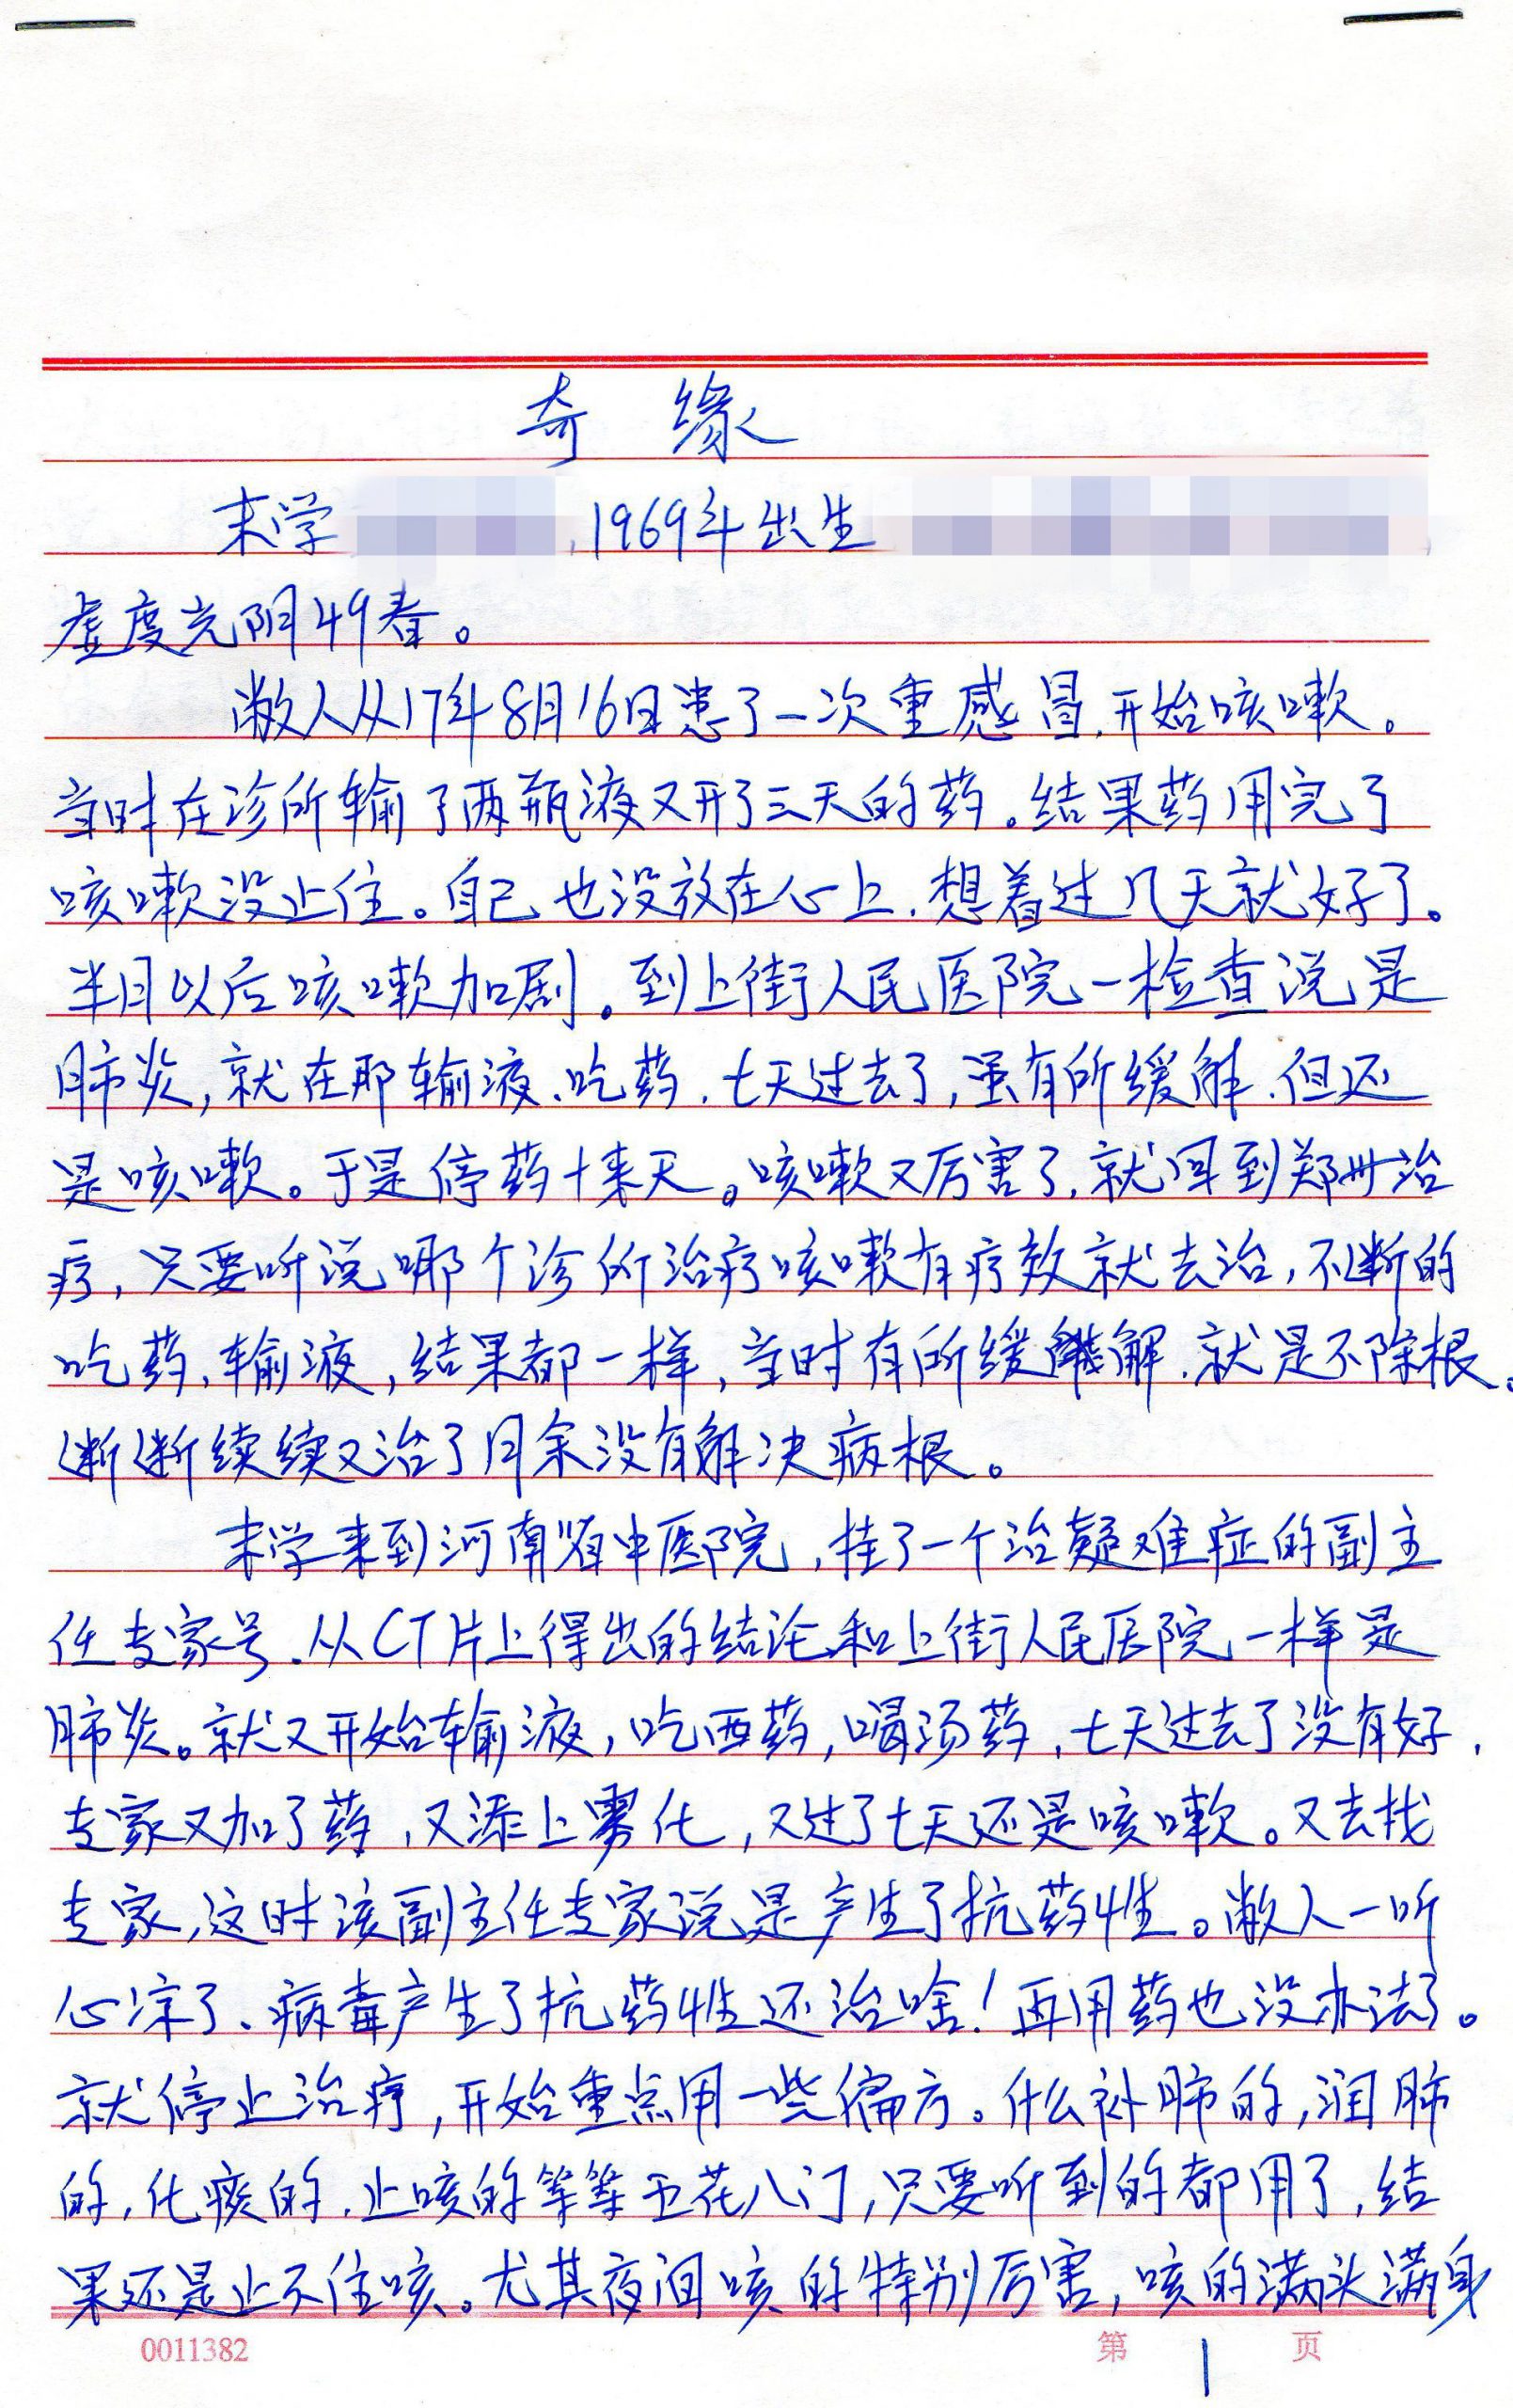 奇缘
末学 ,1969年出生
虚度光阴49春。
敝人从17年8月16日患了一次重感冒,开始咳嗽。
当时在诊所输了两瓶液又开了三天的药。结果药用完了
咳嗽没止住。自己也没放在心上,想着过几天就好了。
半月以后咳嗽加剧。到上街人民医院一检查说是
肺炎,就在那输液、吃药,七天过去了,虽有所缓解,但还
是咳嗽。于是停药十来天。咳嗽又厉害了,就回到郑州治
疗,只要听说哪个诊所治疗咳嗽有疗效就去治,不断的
吃药,输液,结果都一样,当时有所缓解,就是不除根。
断断续续又治了月余没有解决病根。
末学来到河南省中医院,挂了一个治疑难症的副主
任专家号,从CT片上得出的结论和上街人民医院一样是
肺炎。就又开始输液,吃西药,喝汤药,七天过去了没有好,
专家又加了药,又添上雾化,又过了七天还是咳嗽。又去找
专家,这时该副主任专家说是产生了抗药性。敝人一听
心凉了、病毒产生了抗药性还治啥!再用药也没办法了。
就停止治疗,开始重点用一些偏方。什么补肺的,润肺
的,化痰的,止咳的等等五花八门,只要听到的都用了,结
果还是止不住咳。尤其夜间咳的特别厉害,咳的满头满身
0011382 第 1 页